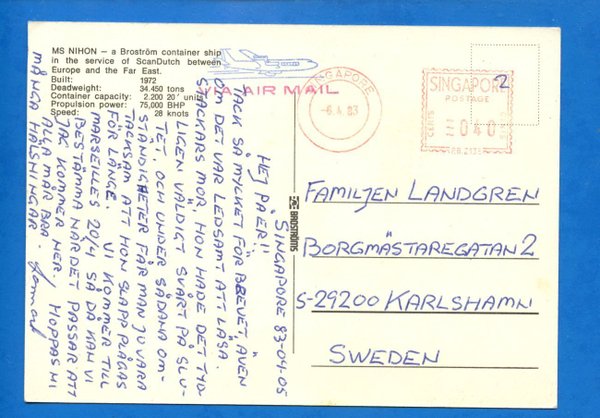 MS NIHON — a Broström container ship
in the service of ScanDutch between
Europe and the Far East.
Built: 1972
Deadweight: 34.450 tons
Container capacity: 2.200 20' units
Propulsion power: 75,000 BHP
Speed: 28 knots
VIA AIR MAIL
SINGAPORE
-6.4.83
SINGAPORE
POSTAGE
CENTS
040
P.B.
2
BROSTRÖMS
SINGAPORE 83-04-05
HEJ PÅ ER!!
TACK SÅ MYCKET FÖR BREVET, ÄVEN
OM DET VAR LEDSAMT ATT LÄSA.
STACKARS MOR, HON HADE DET TYD-
LIGEN VÄLDIGT SVÅRT PÅ SLU-
TET, OCH UNDER SÅDANA OM-
STÄNDIGHETER FÅR MAN JU VARA
TACKSAM ATT HON SLAPP PLÅGAS
FÖR LÄNGE. VI KOMMER TILL
MARSEILLES 20/4 SÅ DÅ KAN VI
BESTÄMMA NÄR DET PASSAR ATT
JAG KOMMER NER. HOPPAS NI
ALLA MÅR BRA.
MÅNGA HÄLSNINGAR
FAMILJEN LANDGREN
BORGMÄSTAREGATAN 2
S-29200 KARLSHAMN
SWEDEN